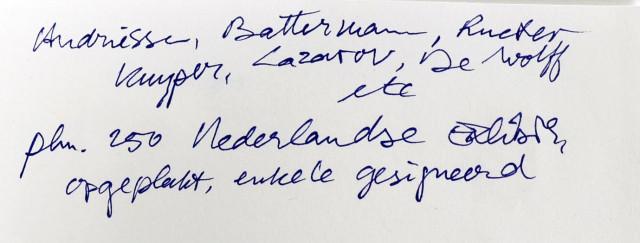 Andriesse, Battermann, Rueter
Kuyper, Lazarov, De Wolff
etc
plm. 250 Nederlandse exlibris,
opgeplakt, enkele gesigneerd